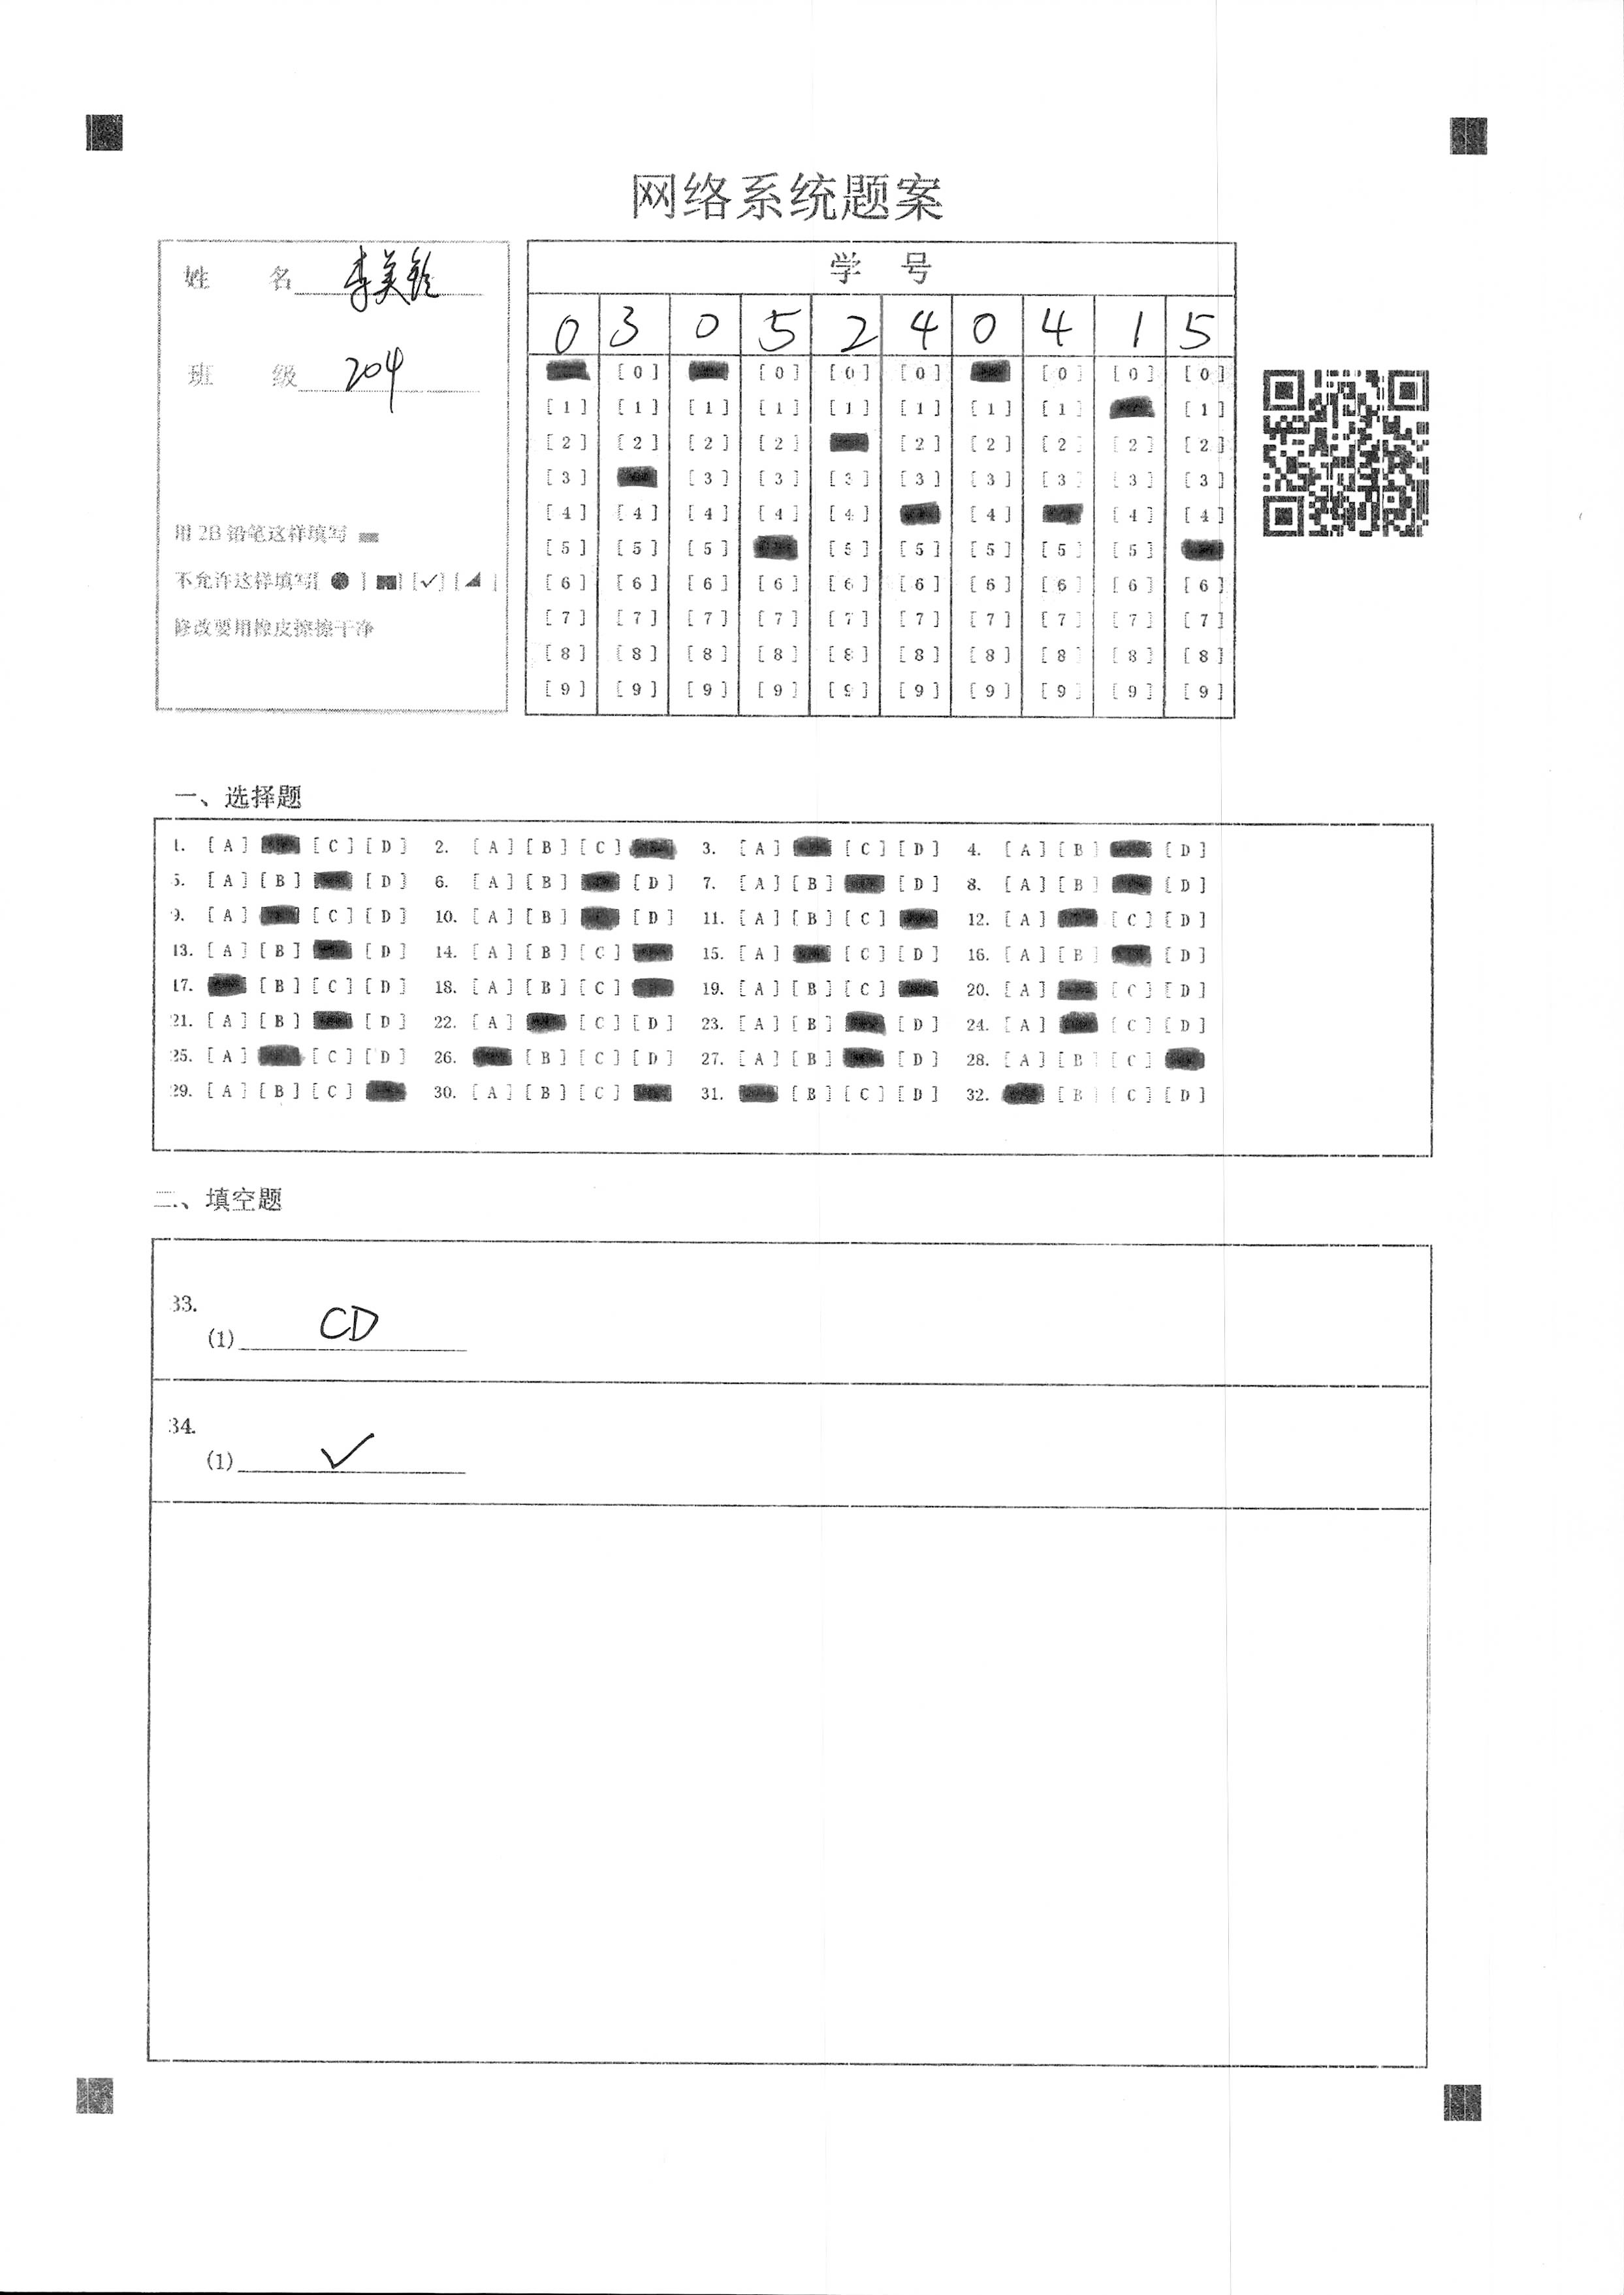 网络系统题案
姓 名 李美铃
班 级 204
用 2B 铅笔这样填写
不允许这样填写[ ● ] [■] [✓] [◢ ]
修改要用橡皮擦擦干净
学 号
0 3 0 5 2 4 0 4 1 5
[0] [0] [0] [0] [0] [0] [0]
[1] [1] [1] [1] [1] [1] [1] [1] [1]
[2] [2] [2] [2] [2] [2] [2] [2] [2]
[3] [3] [3] [3] [3] [3] [3] [3] [3]
[4] [4] [4] [4] [4] [4] [4] [4]
[5] [5] [5] [5] [5] [5] [5] [5]
[6] [6] [6] [6] [6] [6] [6] [6] [6] [6]
[7] [7] [7] [7] [7] [7] [7] [7] [7] [7]
[8] [8] [8] [8] [8] [8] [8] [8] [8] [8]
[9] [9] [9] [9] [9] [9] [9] [9] [9] [9]
一、选择题
1. [A] [C] [D] 2. [A] [B] [C] 3. [A] [C] [D] 4. [A] [B] [D]
5. [A] [B] [D] 6. [A] [B] [D] 7. [A] [B] [D] 8. [A] [B] [D]
9. [A] [C] [D] 10. [A] [B] [D] 11. [A] [B] [C] 12. [A] [C] [D]
13. [A] [B] [D] 14. [A] [B] [C] 15. [A] [C] [D] 16. [A] [B] [D]
17. [B] [C] [D] 18. [A] [B] [C] 19. [A] [B] [C] 20. [A] [C] [D]
21. [A] [B] [D] 22. [A] [C] [D] 23. [A] [B] [D] 24. [A] [C] [D]
25. [A] [C] [D] 26. [B] [C] [D] 27. [A] [B] [D] 28. [A] [B] [C]
29. [A] [B] [C] 30. [A] [B] [C] 31. [B] [C] [D] 32. [B] [C] [D]
二、填空题
33.
(1) CD
34.
(1) ✓